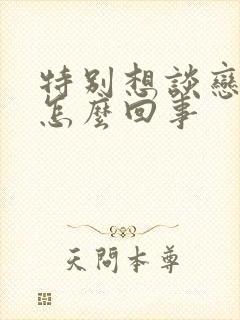 特別想談戀
怎麼回事
天問本尊